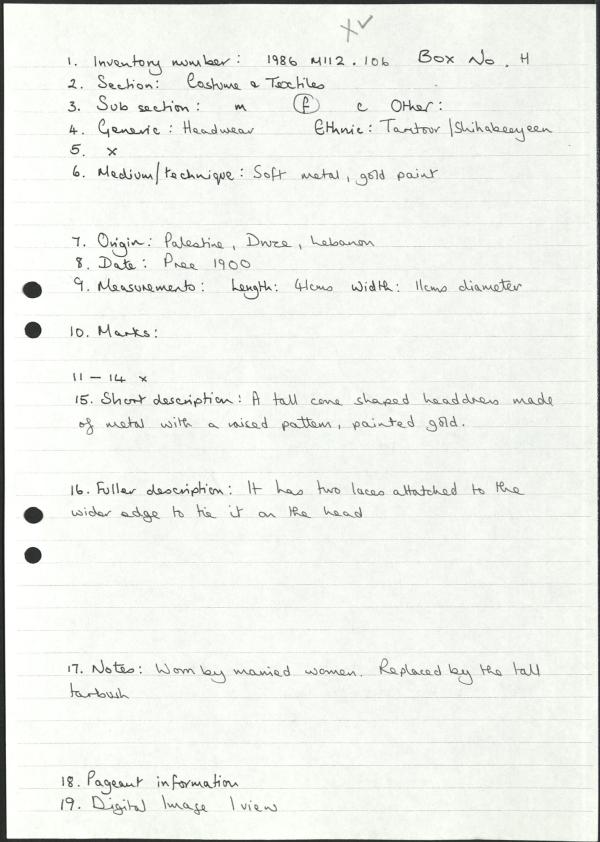 x✓
1. Inventory number: 1986 M112.106 Box No. H
2. Section: Costume & Textiles
3. Sub section: m f c Other:
4. Generic: Headwear Ethnic: Tantour/Shihabeeyeen
5. x
6. Medium/technique: Soft metal, gold paint
7. Origin: Palestine, Druze, Lebanon
8. Date: Pree 1900
9. Measurements: Length: 41cms Width: 11cms diameter
10. Marks:
11 – 14 x
15. Short description: A tall cone shaped headdress made
of metal with a raised pattern, painted gold.
16. Fuller description: It has two laces attatched to the
wider edge to tie it on the head
17. Notes: Worn by married women. Replaced by the tall
tarbush
18. Pageant information
19. Digital Image 1 view